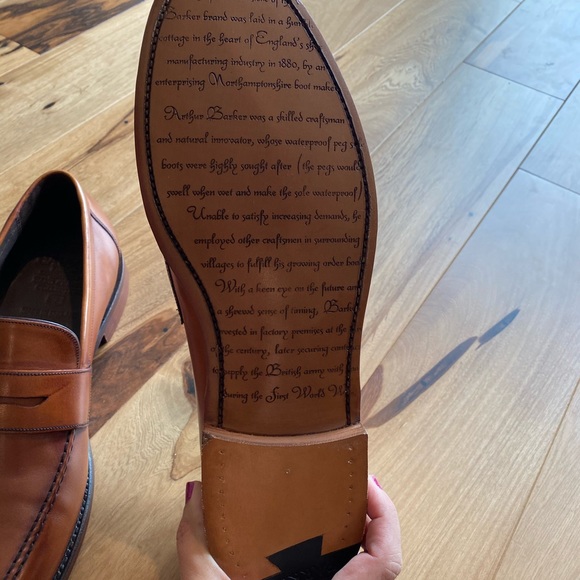 Barker brand was laid in a
cottage in the heart of England's
manufacturing industry in 1880, by an
enterprising Northamptonshire boot make
Arthur Barker was a skilled craftsman
and natural innovator, whose waterproof peg s
boots were highly sought after (the pegs would
swell when wet and make the sole waterproof)
Unable to satisfy increasing demands, he
employed other craftsmen in surrounding
villages to fulfill his growing order boo
With a keen eye on the future an
a shrewd sense of timing, Bark
vested in factory premises at the
the century, later securing
supply the British army with
during the First World W